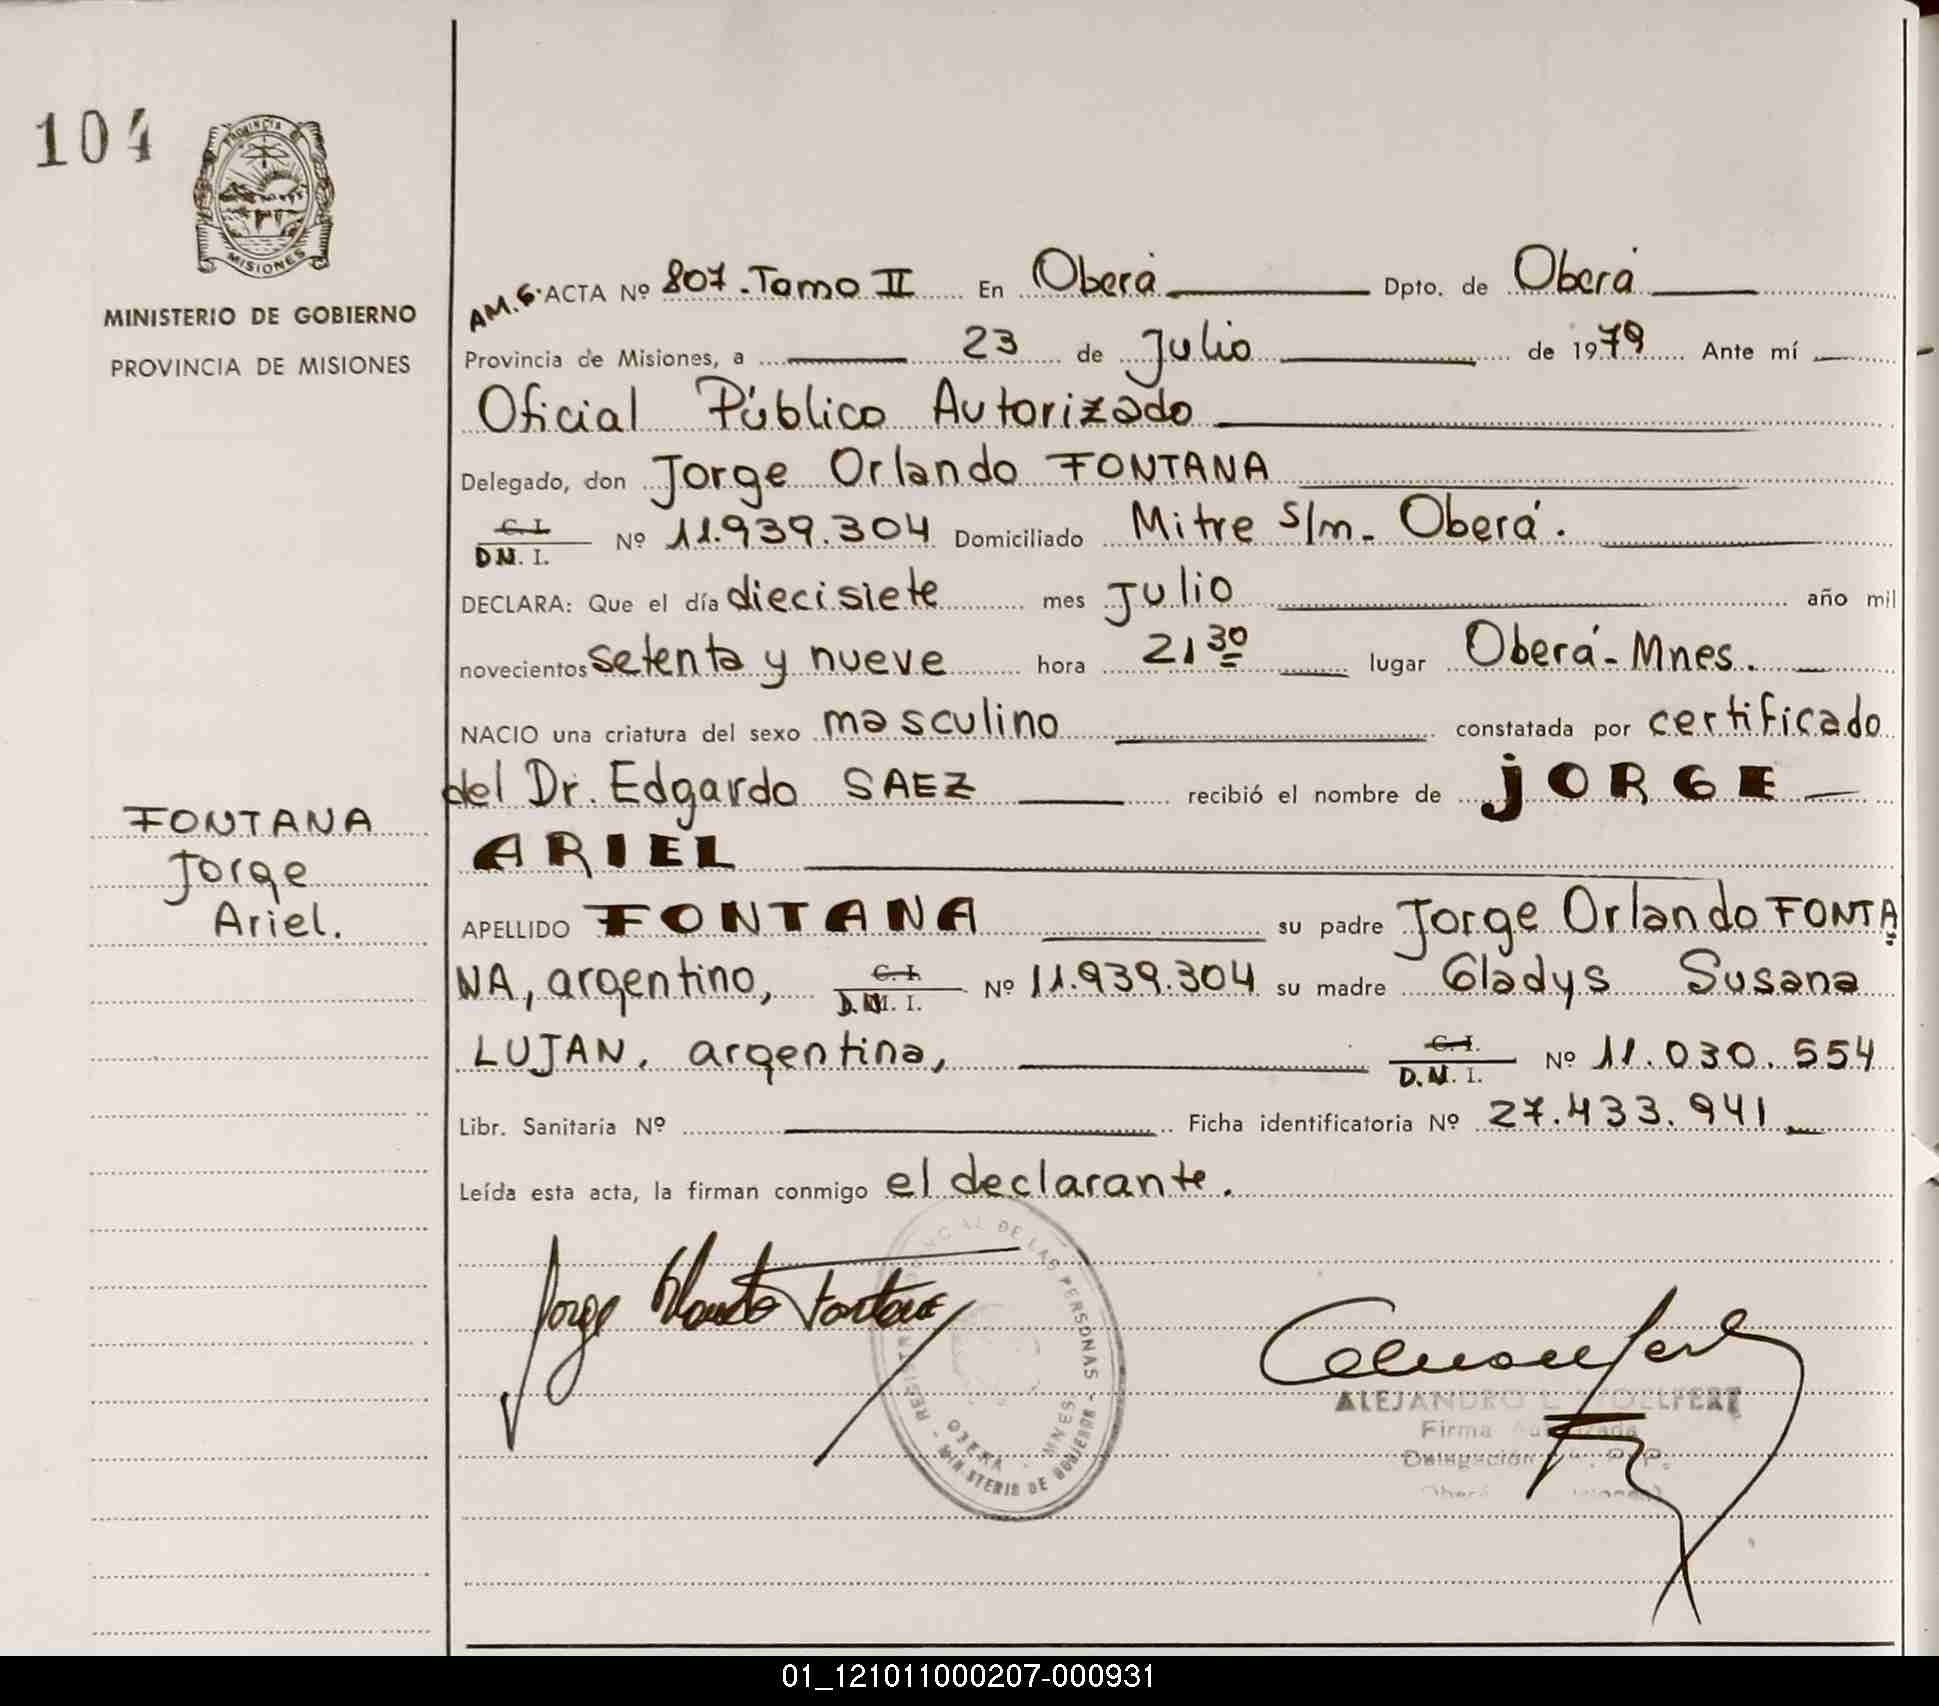 104
PROVINCIA DE
MISIONES
MINISTERIO DE GOBIERNO
PROVINCIA DE MISIONES
FONTANA
Jorge
Ariel.
AM.6. ACTA Nº 807.Tomo II En Oberá Dpto. de Oberá
Provincia de Misiones, a 23 de Julio de 1979 Ante mí
Oficial Público Autorizado
Delegado, don Jorge Orlando FONTANA
C. I.
D.N. I. Nº 11.939.304 Domiciliado Mitre s/n. Oberá.
DECLARA: Que el día diecisiete mes Julio año mil
novecientos setenta y nueve hora 21 30 lugar Oberá-Mnes.
NACIO una criatura del sexo masculino constatada por certificado
del Dr. Edgardo SAEZ recibió el nombre de JORGE
ARIEL
APELLIDO FONTANA su padre Jorge Orlando FONTA
NA, argentino, C. I. D.N. I. Nº 11.939.304 su madre Gladys Susana
LUJAN, argentina, C. I. D.N. I. Nº 11.030.554
Libr. Sanitaria Nº Ficha identificatoria Nº 27.433.941
Leída esta acta, la firman conmigo el declarante.
Jorge Orlando Fontana
DE LAS PERSONAS - MINISTERIO DE GOBIERNO -
OBERA - MNES
ALEJANDRO L. WOELFERT
Firma Autorizada
Delegación
Oberá
01_121011000207-000931